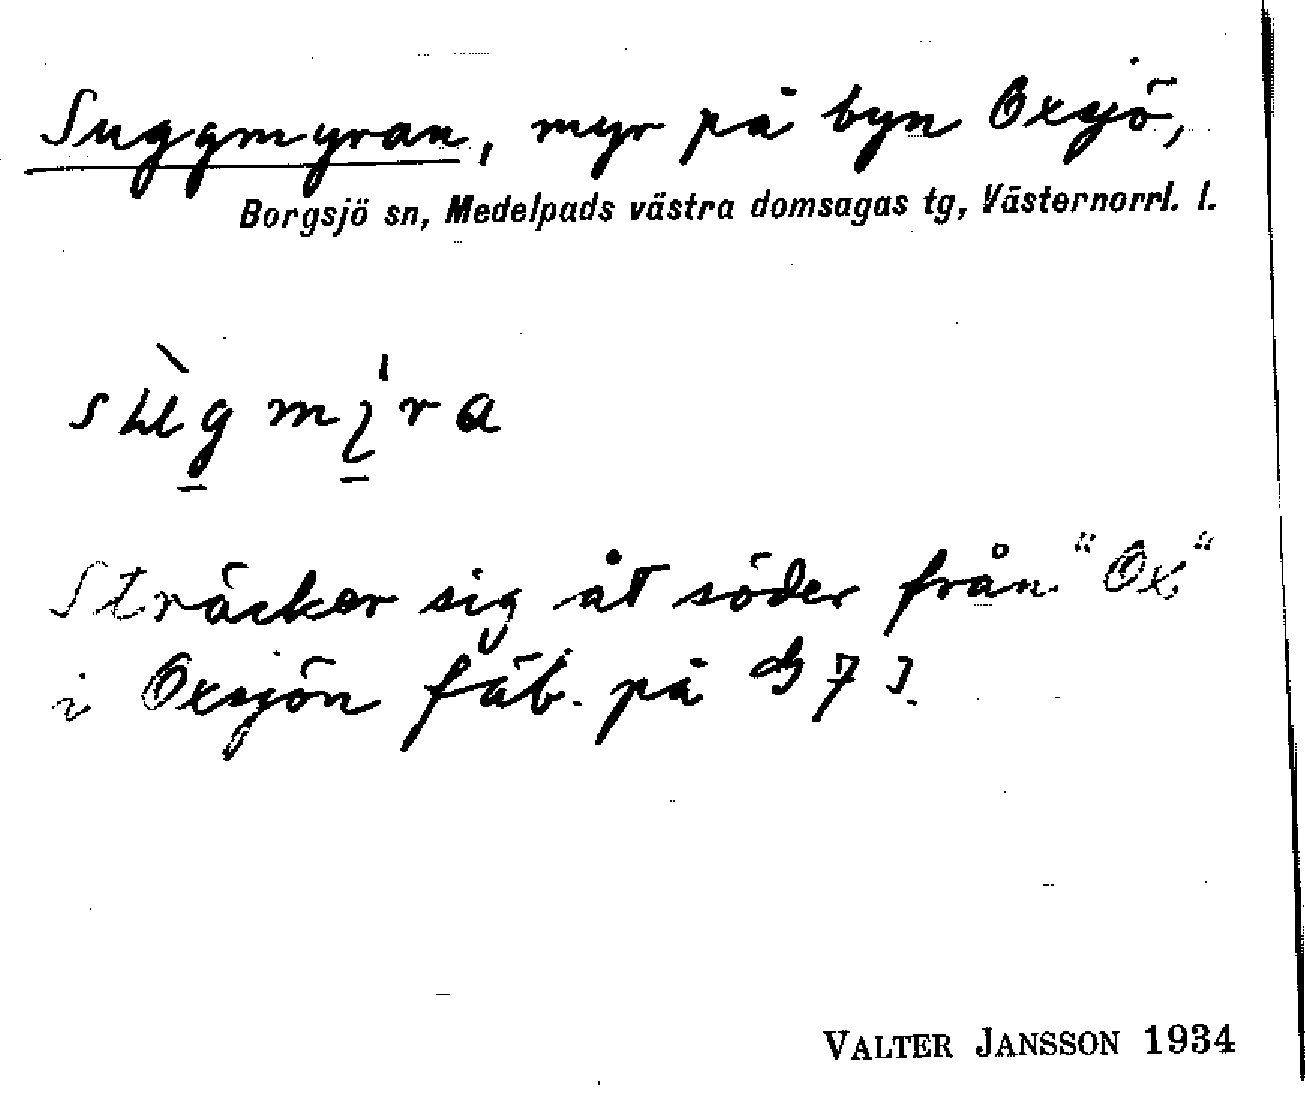 Suggmyran, myr på byn Oxsjö,
Borgsjö sn, Medelpads västra domsagas tg, Västernorrl. l.
Sträcker sig åt söder från "Ox"
i Oxsjön fäb. på G 7 J.
VALTER JANSSON 1934